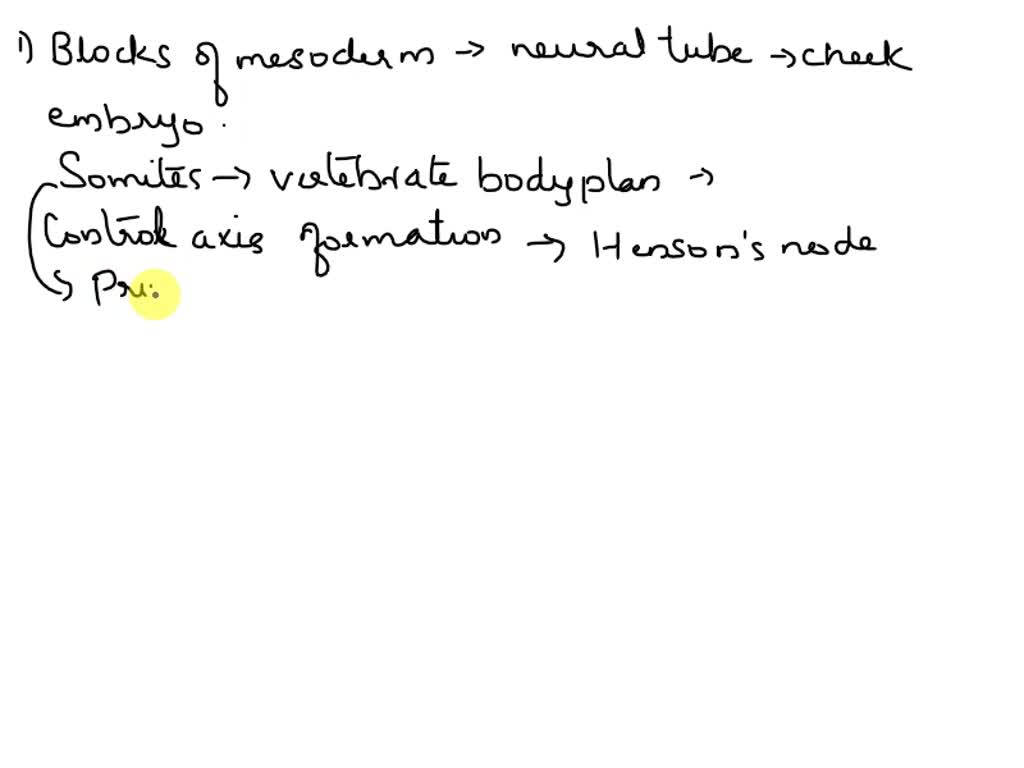 1) Blocks of mesoderm → neural tube → cheek
embryo.
Somites → vertebrate body plan →
Control axis formation → Henson's node
↳ Pri